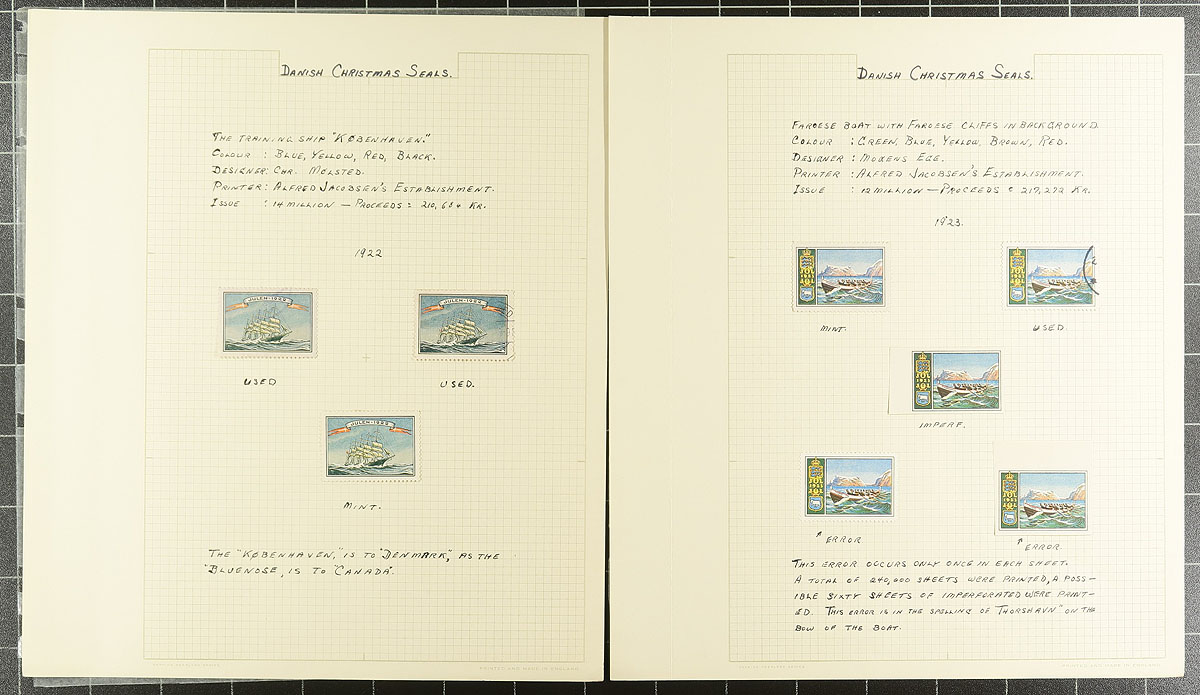 DANISH CHRISTMAS SEALS.
THE TRAINING SHIP "KØBENHAVEN."
COLOUR : BLUE, YELLOW, RED, BLACK.
DESIGNER: CHR. MOLSTED.
PRINTER: ALFRED JACOBSEN'S ESTABLISHMENT.
ISSUE : 14 MILLION — PROCEEDS : 210,684 KR.
1922
JULEN·1922
JULEN·1922
USED
USED.
JULEN·1922
MINT.
THE "KØBENHAVEN," IS TO "DENMARK", AS THE
"BLUENOSE, IS TO "CANADA".
PRINTED AND MADE IN ENGLAND
DANISH CHRISTMAS SEALS.
FAROESE BOAT WITH FAROESE CLIFFS IN BACKGROUND.
COLOUR : GREEN, BLUE, YELLOW, BROWN, RED.
DESIGNER : MOGENS EGE.
PRINTER : ALFRED JACOBSEN'S ESTABLISHMENT.
ISSUE : 12 MILLION — PROCEEDS : 217,272 KR.
1923.
MINT.
USED.
IMPERF.
ERROR
ERROR.
THIS ERROR OCCURS ONLY ONCE IN EACH SHEET.
A TOTAL OF 240,000 SHEETS WERE PRINTED, A POSS-
IBLE SIXTY SHEETS OF IMPERFORATED WERE PRINT-
ED. THIS ERROR IS IN THE SPELLING OF THORSHAVN" ON THE
BOW OF THE BOAT.
PRINTED AND MADE IN ENGLAND